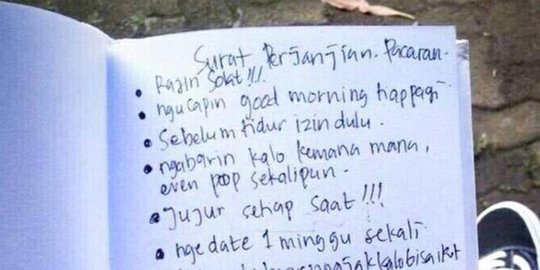 Surat Perjanjian Pacaran.
• Rajin Solat!!!
• ngucapin good morning tiap pagi
• Sebelum tidur izin dulu.
• ngabarin kalo kemana mana,
even pop sekalipun.
• Jujur setiap saat!!!
• ngedate 1 minggu sekali
ngajak kalo bisa ikut